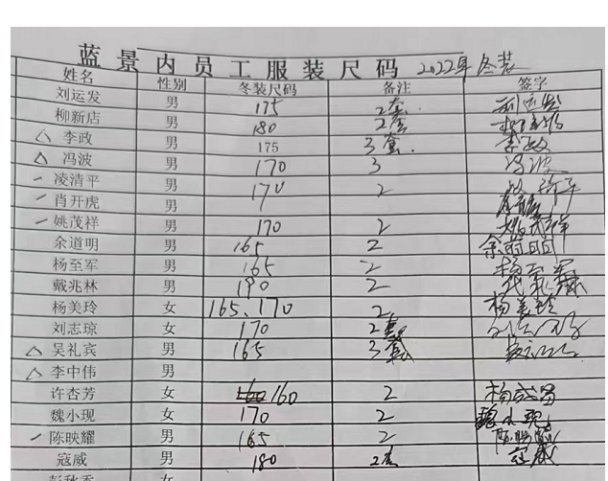 蓝景内员工服装尺码 2022年冬装
姓名 性别 冬装尺码 备注 签字
刘运发 男 175 2套 刘运发
柳新店 男 180 2套 柳新店
△ 李政 男 175 3套. 李政
△ 冯波 男 170 3 冯波
一 凌清平 男 170 2
一 肖开虎 男 肖开虎
一 姚茂祥 男 170 2 姚茂祥
余道明 男 165 2 余道明
杨至军 男 165 2 杨至军
戴兆林 男 190 2
杨美玲 女 165、170 2 杨美玲
刘志琼 女 170 2套
△ 吴礼宾 男 165 3套
△ 李中伟 男
许杏芳 女 160 2
魏小现 女 170 2 魏小现
一 陈映耀 男 165 2 陈映耀
寇威 男 180 2套 寇威